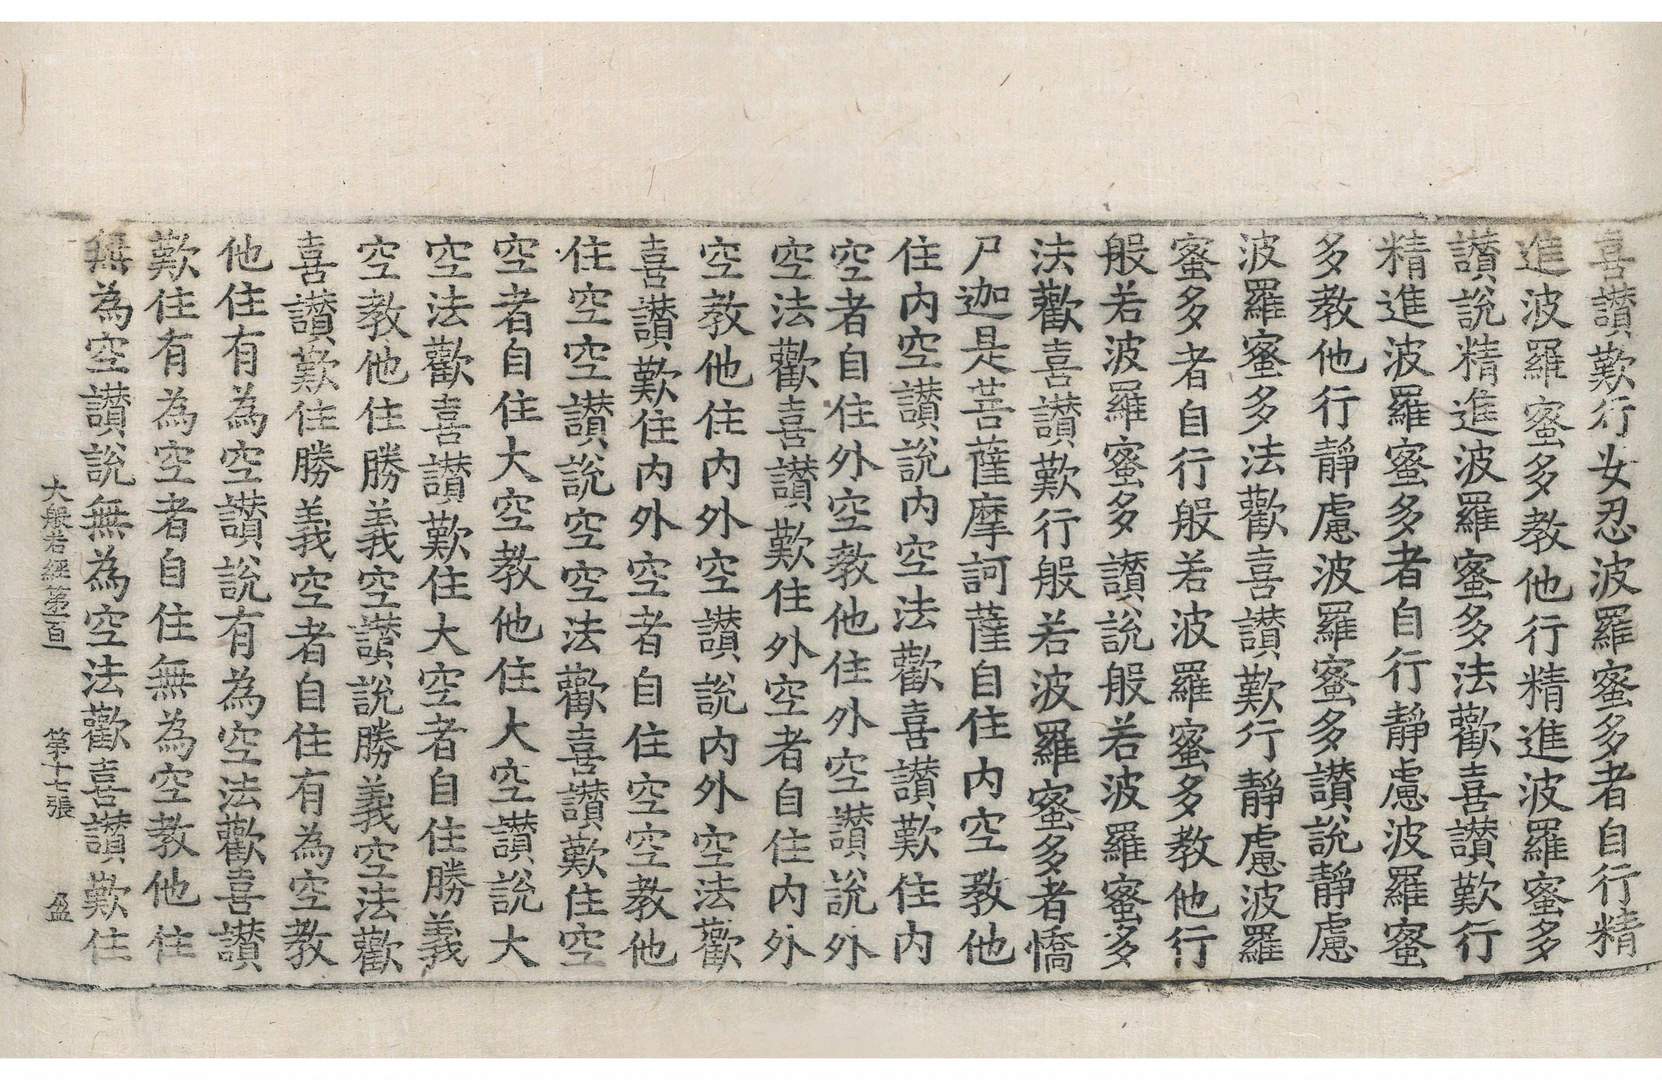 喜讃歎行女忍波羅蜜多者自行精
進波羅蜜多教他行精進波羅蜜多
讃說精進波羅蜜多法歡喜讃歎行
精進波羅蜜多者自行靜慮波羅蜜
多教他行靜慮波羅蜜多讃說靜慮
波羅蜜多法歡喜讃歎行靜慮波羅
蜜多者自行般若波羅蜜多教他行
般若波羅蜜多讃說般若波羅蜜多
法歡喜讃歎行般若波羅蜜多者憍
尸迦是菩薩摩訶薩自住內空教他
住內空讃說內空法歡喜讃歎住內
空者自住外空教他住外空讃說外
空法歡喜讃歎住外空者自住內外
空教他住內外空讃說內外空法歡
喜讃歎住內外空者自住空空教他
住空空讃說空空法歡喜讃歎住空
空者自住大空教他住大空讃說大
空法歡喜讃歎住大空者自住勝義
空教他住勝義空讃說勝義空法歡
喜讃歎住勝義空者自住有為空教
他住有為空讃說有為空法歡喜讃
歎住有為空者自住無為空教他住
無為空讃說無為空法歡喜讃歎住
大般若經第一百一　第十七張　盈